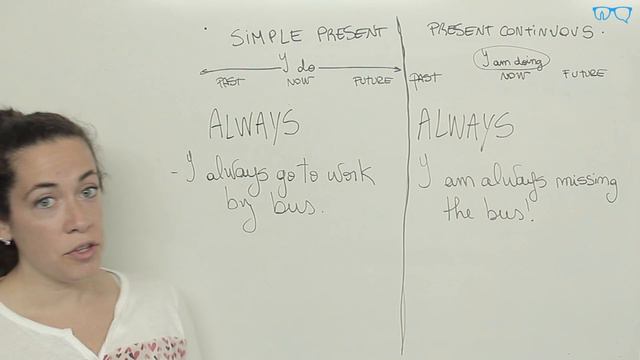 SIMPLE PRESENT
I do
PAST NOW FUTURE
ALWAYS
- I always go to work
by bus.
PRESENT CONTINUOUS.
I am doing
PAST NOW FUTURE
ALWAYS
I am always missing
the bus!